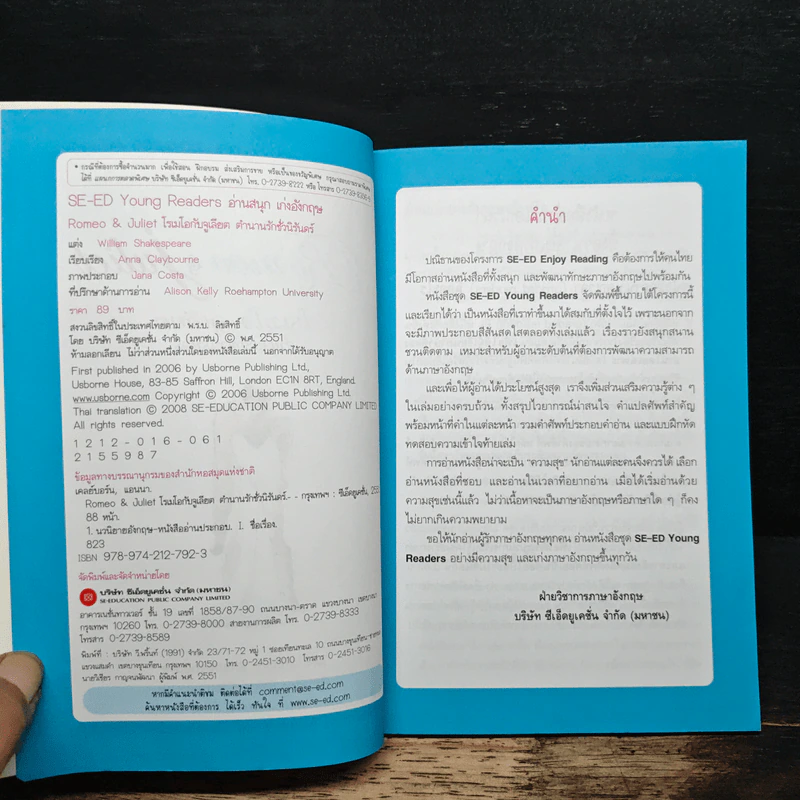 • กรณีที่ต้องการซื้อจำนวนมาก เพื่อใช้สอน ฝึกอบรม ส่งเสริมการขาย หรือเป็นของขวัญพิเศษ กรุณาสอบถามราคาพิเศษ
ได้ที่ แผนกการตลาดพิเศษ บริษัท ซีเอ็ดยูเคชั่น จำกัด (มหาชน) โทร. 0-2739-8222 หรือ โทรสาร
SE-ED Young Readers อ่านสนุก เก่งอังกฤษ
Romeo & Juliet โรเมโอกับจูเลียต ตำนานรักชั่วนิรันดร์
แต่ง William Shakespeare
เรียบเรียง Anna Claybourne
ภาพประกอบ Jana Costa
ที่ปรึกษาด้านการอ่าน Alison Kelly Roehampton University
ราคา 89 บาท
สงวนลิขสิทธิ์ในประเทศไทยตาม พ.ร.บ. ลิขสิทธิ์
โดย บริษัท ซีเอ็ดยูเคชั่น จำกัด (มหาชน) © พ.ศ. 2551
ห้ามลอกเลียน ไม่ว่าส่วนหนึ่งส่วนใดของหนังสือเล่มนี้ นอกจากได้รับอนุญาต
First published in 2006 by Usborne Publishing Ltd.,
Usborne House, 83-85 Saffron Hill, London EC1N 8RT, England.
www.usborne.com Copyright © 2006 Usborne Publishing Ltd.
Thai translation © 2008 SE-EDUCATION PUBLIC COMPANY LIMITED
All rights reserved.
1 2 1 2 - 0 1 6 - 0 6 1
2 1 5 5 9 8 7
ข้อมูลทางบรรณานุกรมของสำนักหอสมุดแห่งชาติ
เคลย์บอร์น, แอนนา.
Romeo & Juliet โรเมโอกับจูเลียต ตำนานรักชั่วนิรันดร์.- - กรุงเทพฯ : ซีเอ็ดยูเคชั่น,
88 หน้า.
1. นวนิยายอังกฤษ-หนังสืออ่านประกอบ. I. ชื่อเรื่อง.
823
ISBN 978-974-212-792-3
จัดพิมพ์และจัดจำหน่ายโดย
บริษัท ซีเอ็ดยูเคชั่น จำกัด (มหาชน)
SE-EDUCATION PUBLIC COMPANY LIMITED
อาคารเนชั่นทาวเวอร์ ชั้น 19 เลขที่ 1858/87-90 ถนนบางนา-ตราด แขวงบางนา เขตบางนา
กรุงเทพฯ 10260 โทร. 0-2739-8000 สายงานการผลิต โทร. 0-2739-8333
โทรสาร 0-2739-8589
พิมพ์ที่ : บริษัท วี.พริ้นท์ (1991) จำกัด 23/71-72 หมู่ 1 ซอยเทียนทะเล 10 ถนนบางขุนเทียน-ชายทะเล
แขวงแสมดำ เขตบางขุนเทียน กรุงเทพฯ 10150 โทร. 0-2451-3010 โทรสาร 0-2451-3016
นายวิเชียร กาญจนพัฒนา ผู้พิมพ์ พ.ศ. 2551
หากมีคำแนะนำติชม ติดต่อได้ที่ comment@se-ed.com
ค้นหาหนังสือที่ต้องการ ได้เร็ว ทันใจ ที่ www.se-ed.com
คำนำ
ปณิธานของโครงการ SE-ED Enjoy Reading คือต้องการให้คนไทย
มีโอกาสอ่านหนังสือที่ทั้งสนุก และพัฒนาทักษะภาษาอังกฤษไปพร้อมกัน
หนังสือชุด SE-ED Young Readers จัดพิมพ์ขึ้นภายใต้โครงการนี้
และเรียกได้ว่า เป็นหนังสือที่เราทำขึ้นมาได้สมกับที่ตั้งใจไว้ เพราะนอกจาก
จะมีภาพประกอบสีสันสดใสตลอดทั้งเล่มแล้ว เรื่องราวยังสนุกสนาน
ชวนติดตาม เหมาะสำหรับผู้อ่านระดับต้นที่ต้องการพัฒนาความสามารถ
ด้านภาษาอังกฤษ
และเพื่อให้ผู้อ่านได้ประโยชน์สูงสุด เราจึงเพิ่มส่วนเสริมความรู้ต่าง ๆ
ในเล่มอย่างครบถ้วน ทั้งสรุปไวยากรณ์น่าสนใจ คำแปลศัพท์สำคัญ
พร้อมหน้าที่คำในแต่ละหน้า รวมคำศัพท์ประกอบคำอ่าน และแบบฝึกหัด
ทดสอบความเข้าใจท้ายเล่ม
การอ่านหนังสือน่าจะเป็น "ความสุข" นักอ่านแต่ละคนจึงควรได้ เลือก
อ่านหนังสือที่ชอบ และอ่านในเวลาที่อยากอ่าน เมื่อได้เริ่มอ่านด้วย
ความสุขเช่นนี้แล้ว ไม่ว่าเนื้อหาจะเป็นภาษาอังกฤษหรือภาษาใด ๆ ก็คง
ไม่ยากเกินความพยายาม
ขอให้นักอ่านผู้รักภาษาอังกฤษทุกคน อ่านหนังสือชุด SE-ED Young
Readers อย่างมีความสุข และเก่งภาษาอังกฤษขึ้นทุกวัน
ฝ่ายวิชาการภาษาอังกฤษ
บริษัท ซีเอ็ดยูเคชั่น จำกัด (มหาชน)